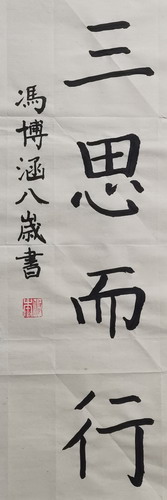 三思而行
馮博涵八歳書